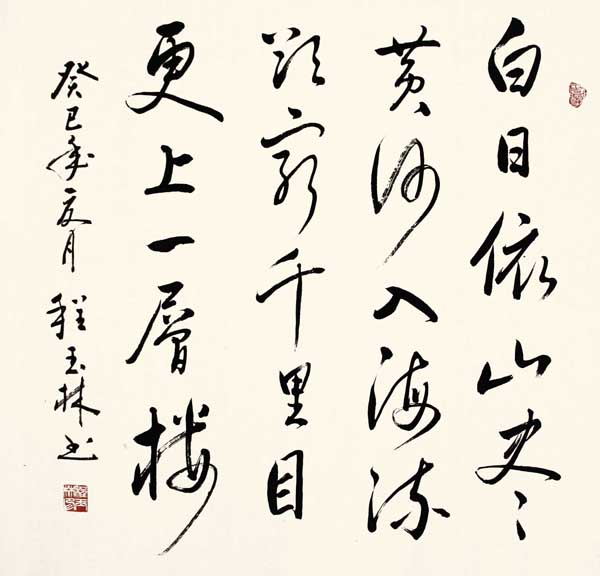 白日依山尽
黄河入海流
欲窮千里目
更上一層楼
癸巳年夏月 程玉林书